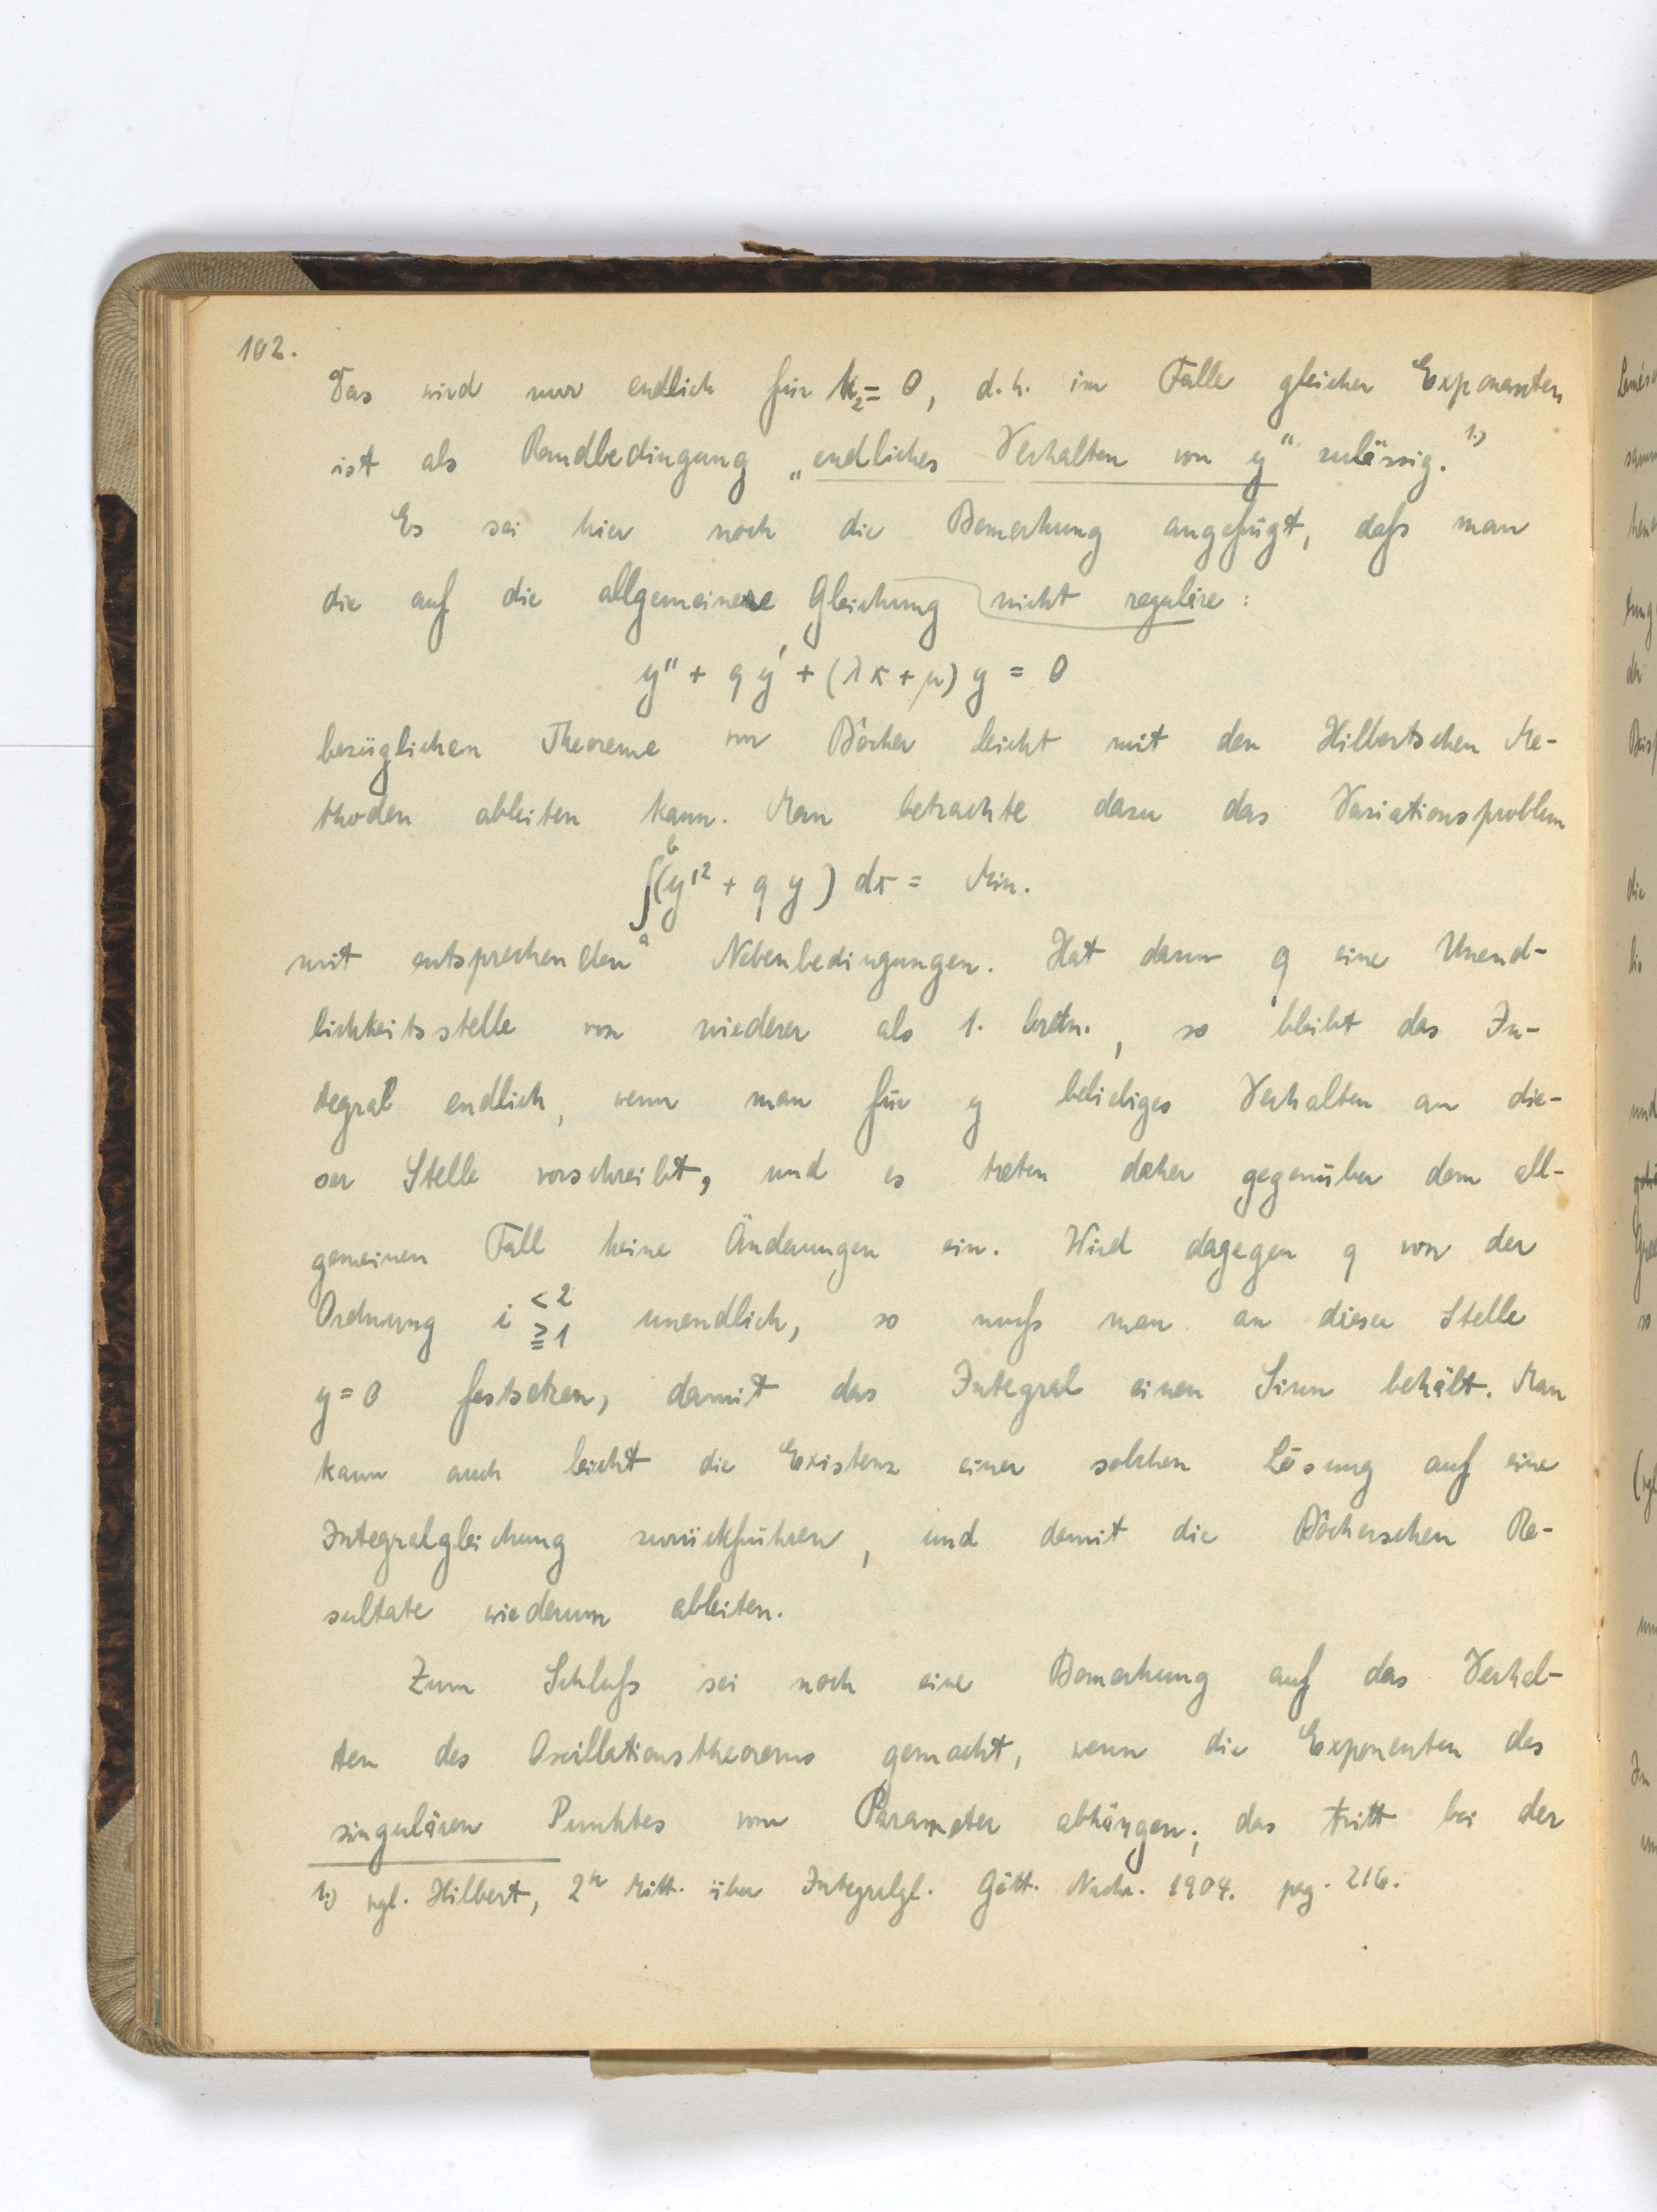 102.
Das wird nur endlich für k₂ = 0, d.h. im Falle gleicher Exponenten
ist als Randbedingung „endliches Verhalten von y“ zulässig. 1.)
Es sei hier noch die Bemerkung angefügt, dafs man
die auf die allgemeinere Gleichung nicht reguläre:
y'' + q y' + (λx + μ) y = 0
bezüglichen Theoreme von Bôcher leicht mit den Hilbertschen Me-
thoden ableiten kann. Man betrachte dazu das Variationsproblem
∫ₐᵇ (y'² + q y) dx = Min.
mit entsprechenden Nebenbedingungen. Hat dann q eine Unend-
lichkeitsstelle von niederer als 1. Ordn., so bleibt das In-
tegral endlich, wenn man für y beliebiges Verhalten an die-
ser Stelle vorschreibt, und es treten daher gegenüber dem all-
gemeinen Fall keine Änderungen ein. Wird dagegen q von der
Ordnung i < 2 ≧ 1 unendlich, so mufs man an dieser Stelle
y = 0 festsetzen, damit das Integral einen Sinn behält. Man
kann auch leicht die Existenz einer solchen Lösung auf eine
Integralgleichung zurückführen, und damit die Bôcherschen Re-
sultate wiederum ableiten.
Zum Schlufs sei noch eine Bemerkung auf das Verhal-
ten des Oscillationstheorems gemacht, wenn die Exponenten des
singulären Punktes vom Parameter abhängen; das tritt bei der
1.) vgl. Hilbert, 2te Mitt. über Integralgl. Gött. Nachr. 1904. pag. 216.